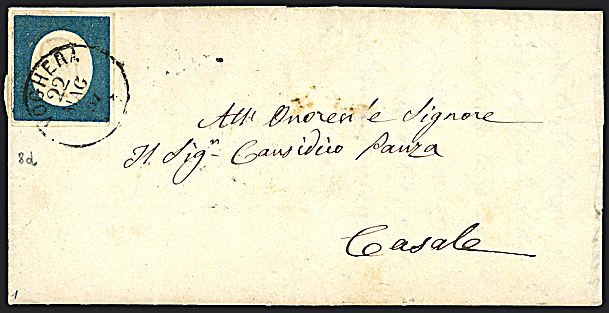 VOGHERA
22
MAG
8d
All' Onorev.e Signore
Il Sigr. Causidico Panza
Casale
1